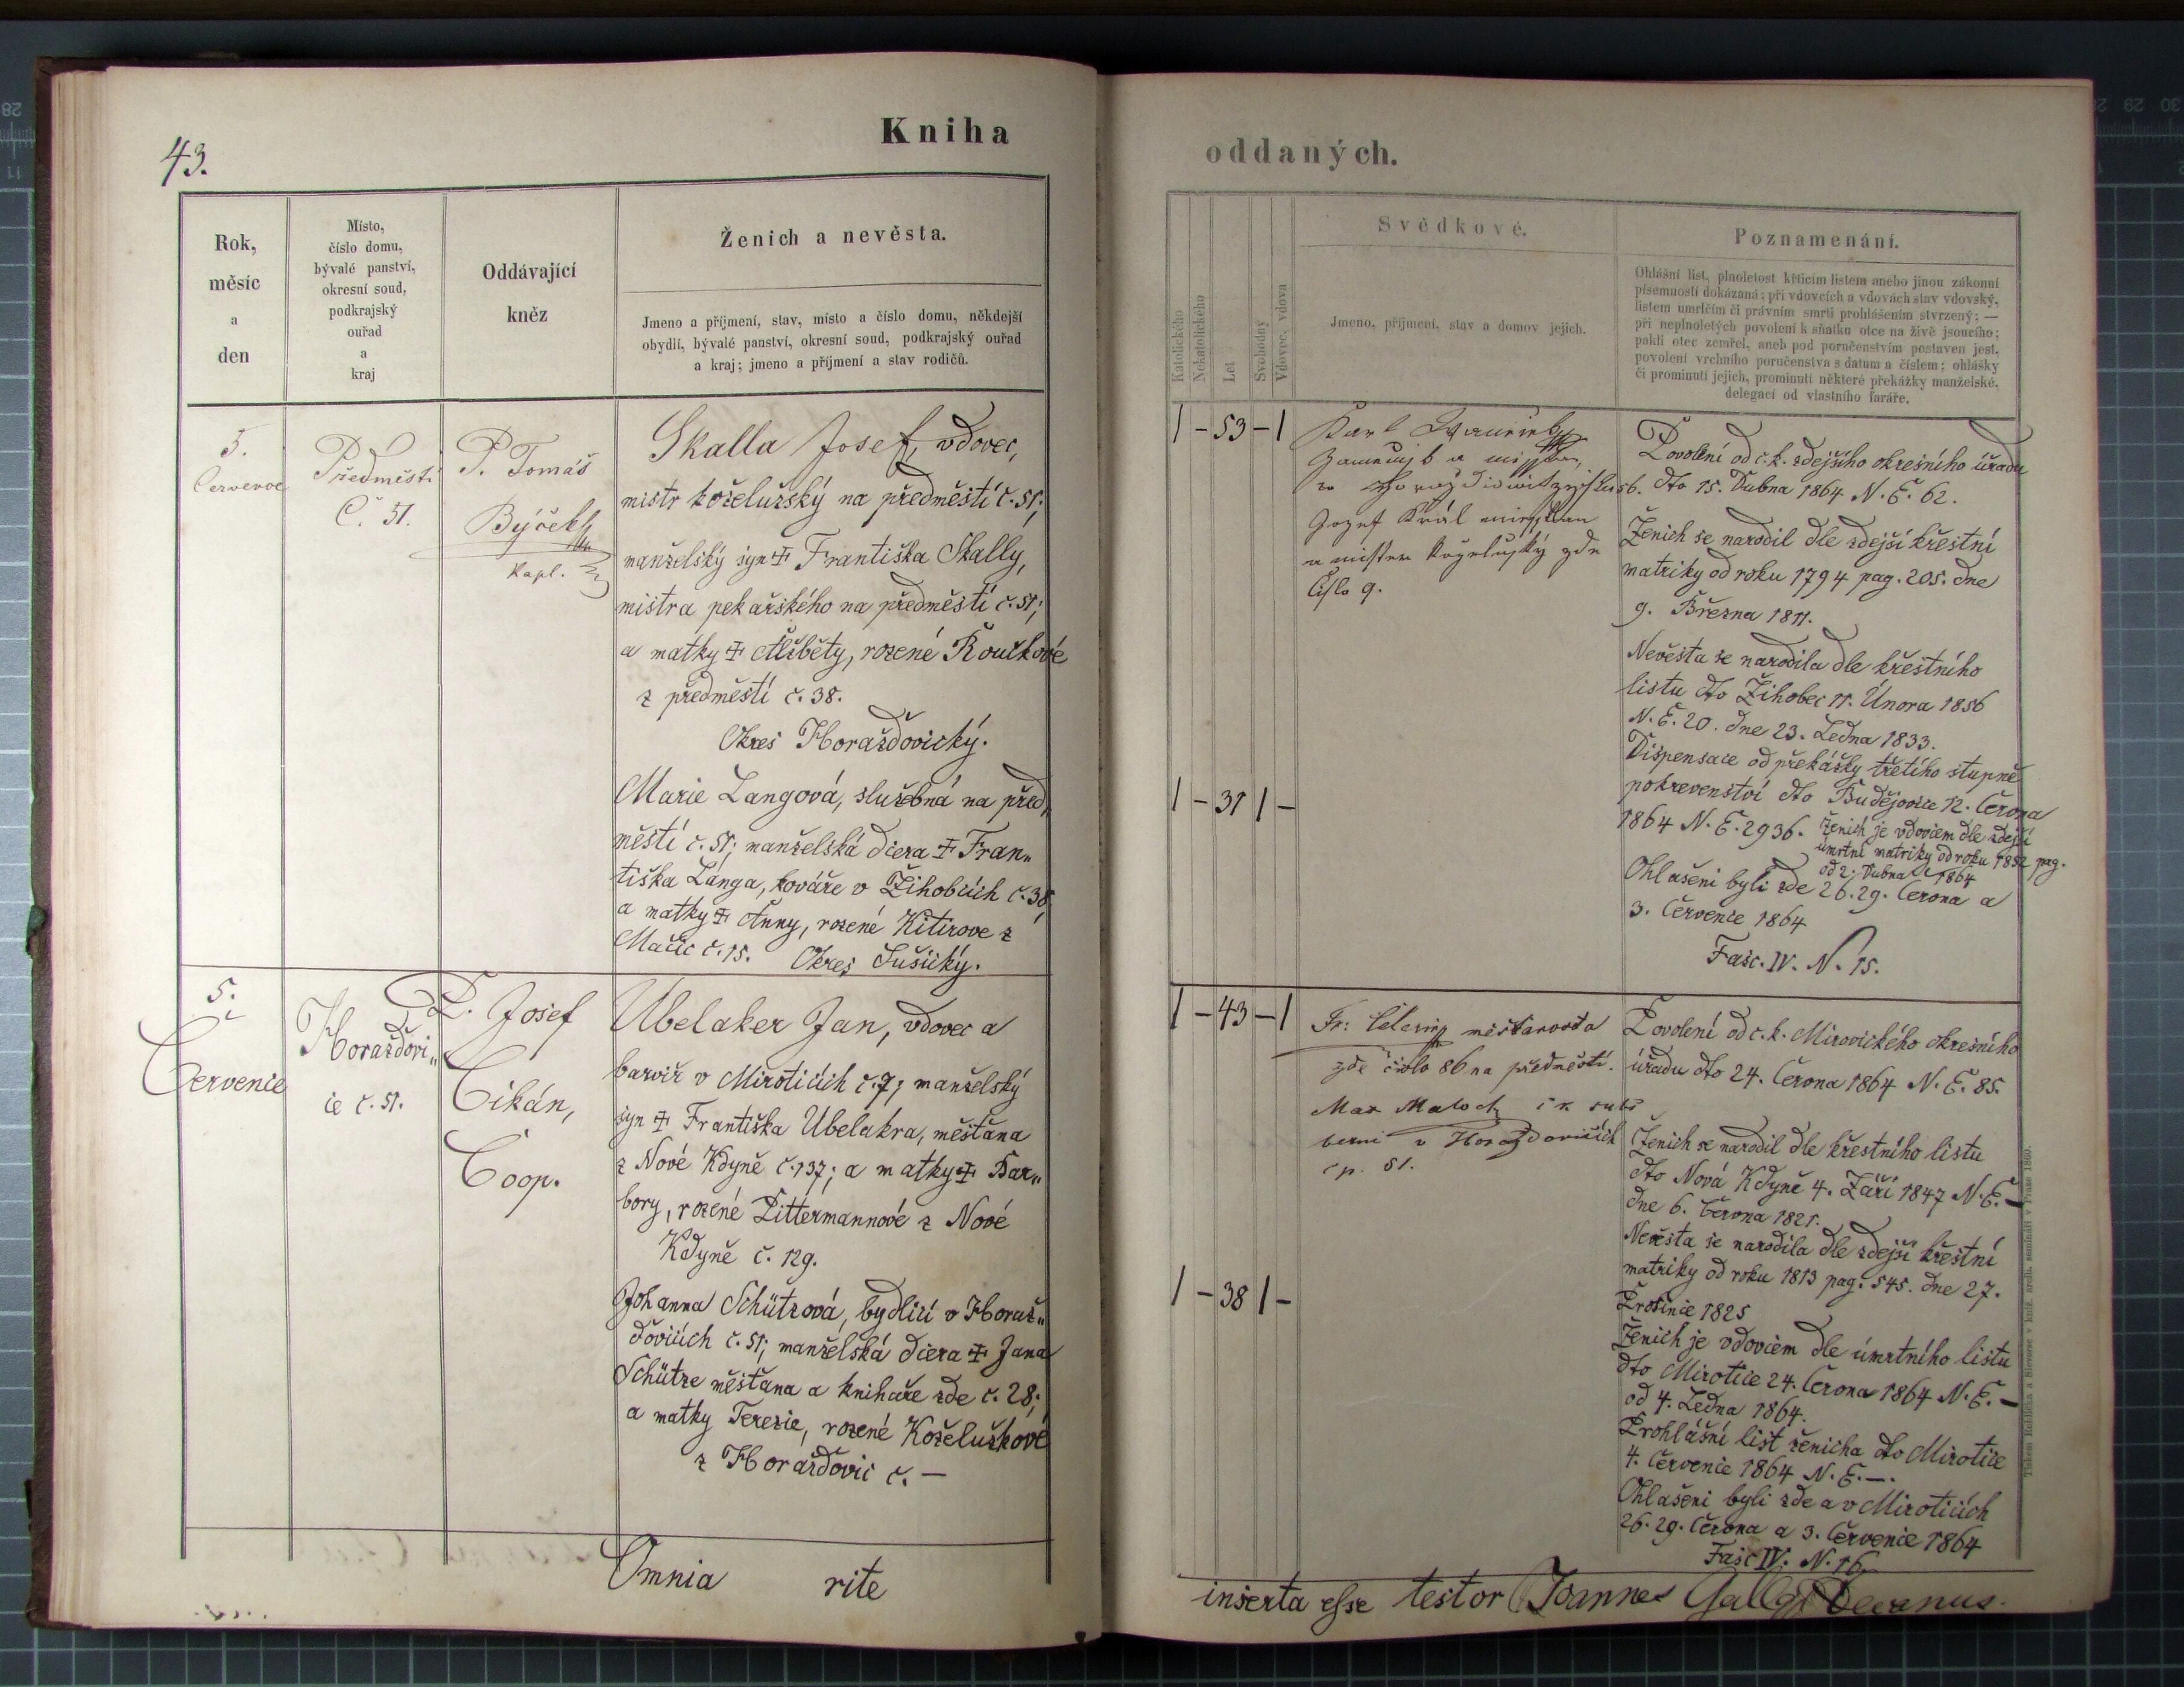 43.
Kniha
Rok,
měsíc
a
den
Místo,
číslo domu,
bývalé panství,
okresní soud,
podkrajský
ouřad
a
kraj
Oddávající
kněz
Ženich a nevěsta.
Jmeno a příjmení, stav, místo a číslo domu, někdejší
obydlí, bývalé panství, okresní soud, podkrajský ouřad
a kraj; jmeno a příjmení a stav rodičů.
3.
Července
Předměstí
Č. 51.
P. Tomáš
Býček
Kapl.
Skalla Josef, vdovec,
mistr koželužský na předměstí č. 51;
manželský syn ‡ Františka Skally,
mistra pekařského na předměstí č. 51;
a matky ‡ Alžběty, rozené Roučkové
z předměstí č. 38.
Okres Horažďovický.
Marie Langová, služebná na před„
městí č. 51; manželská dcera ‡ Fran„
tiška Langa, kováře v Žihobcích č. 38,
a matky ‡ Anny, rozené Kitirove z
Mačic č. 15. Okres Sušický.
5.
Července
Horažďovi„
ce č. 51.
P. Josef
Cikán,
Coop.
Ubelaker Jan, vdovec a
barvíř v Miroticích č. 7; manželský
syn ‡ Františka Ubelakra, měšťana
z Nové Kdyně č. 137; a matky ‡ Bar„
bory, rozené Pittermannové z Nové
Kdyně č. 129.
Johanna Schützová, bydlící v Horaž„
ďovicích č. 51; manželská dcera ‡ Jana
Schütze měšťana a knihaře zde č. 28;
a matky Terezie, rozené Koželužkové
z Horažďovic č. —
Omnia rite
oddaných.
Katolického
Nekatolického
Let
Svobodný
Vdovec, vdova
Svědkové.
Jmeno, příjmení, stav a domov jejich.
Poznamenání.
Ohlášní list, plnoletost křticím listem aneb jinou zákonní
písemností dokázaná; při vdovcích a vdovách stav vdovský,
listem umrlčím či právním smrti prohlášením stvrzený; —
při neplnoletých povolení k sňatku otce na živě jsoucího;
pakli otec zemřel, aneb pod poručenstvím postaven jest,
povolení vrchního poručenstva s datum a číslem; ohlášky
či prominutí jejich, prominutí některé překážky manželské,
delegací od vlastního faráře.
1 - 53 - 1
Karl
Jozef Král
a mister koželužský zde
Čislo 9.
1 - 31 1 -
Povolení od c. k. zdejšího okresního úřadu
dto 15. Dubna 1864 N. E. 62.
Ženich se narodil dle zdejší křestní
matriky od roku 1794 pag. 205. dne
9. Března 1811.
Nevěsta se narodila dle křestního
listu dto Žihobec 11. Února 1856
N. E. 20. dne 23. Ledna 1833.
Dispensace od překážky třetího stupně
pokrevenství dto Budějovice 12. Června
1864 N. E. 2936. Ženich je vdovcem dle zdejší
úmrtní matriky od roku 1852 pag.
od 2. Dubna 1864
Ohlašeni byli zde 26. 29. Června a
3. Července 1864
Fasc. IV. N. 15.
1 - 43 - 1
Fr: Celerin měšťanosta
zde číslo 86 na předměstí.
Max Maloch
berní v Horažďovicích
čp. 51.
1 - 38 1 -
Povolení od c. k. Mirovického okresního
úřadu dto 24. Června 1864 N. E. 85.
Ženich se narodil dle křestního listu
dto Nová Kdyně 4. Září 1847 N. E. —
dne 6. Června 1821.
Nevěsta se narodila dle zdejší křestní
matriky od roku 1813 pag. 545. dne 27.
Prosince 1825
Ženich je vdovcem dle úmrtního listu
dto Mirotice 24. Června 1864 N. E. —
od 4. Ledna 1864.
Prohlášní list ženicha dto Mirotice
4. Července 1864 N. E. —.
Ohlašeni byli zde a v Miroticích
26. 29. Června a 3. Července 1864
Fasc IV. N. 16
inserta esse testor Joannes Gallas Decanus.